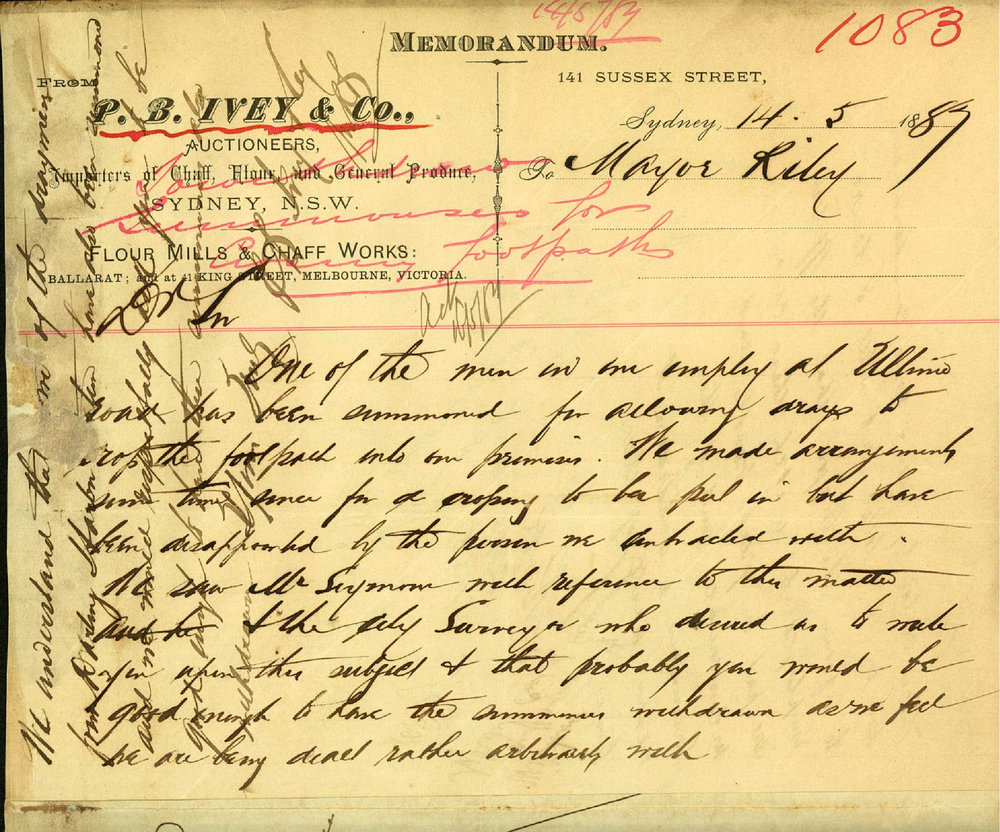 14/5/87
1083
MEMORANDUM.
FROM
P. B. IVEY & CO.,
AUCTIONEERS,
Importers of Chaff, Flour, and General Produce,
SYDNEY, N.S.W.
FLOUR MILLS & CHAFF WORKS:
BALLARAT; and at 41 KING STREET, MELBOURNE, VICTORIA.
141 SUSSEX STREET,
Sydney, 14. 5 1887
To Mayor Riley
summonses for
footpath
Dr Sir
One of the men in our employ at Ultimo
road has been summoned for allowing drays to
cross the footpath into our premises. We made arrangements
some time since for a crossing to be put in but have
been disappointed by the person we contracted with.
We saw Mr Seymour with reference to this matter
and he & the City Surveyor who desired us to write
you upon this subject & that probably you would be
good enough to have the summonses withdrawn as we feel
we are being dealt rather arbitrarily with
We understand that one of the draymen
from Darling Harbor has also been summoned
and we would respectfully ask you to be
good enough to have the summonses
withdrawn